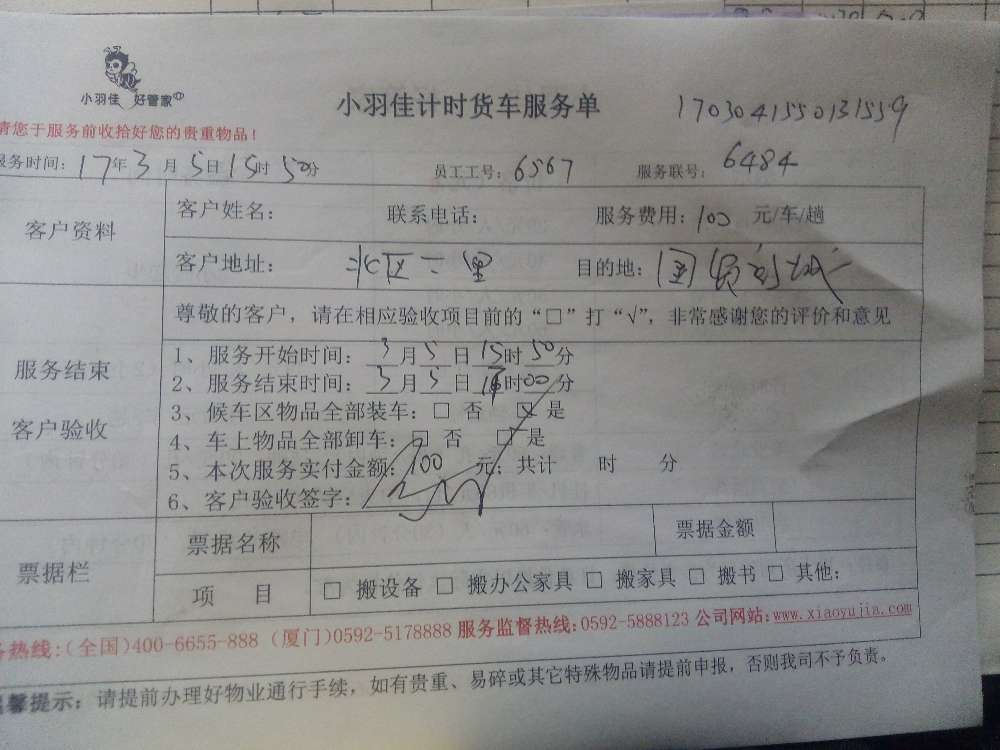 小羽佳 好管家
小羽佳计时货车服务单
170304155013 1559
请您于服务前收拾好您的贵重物品！
服务时间：17年3月5日15时50分 员工工号：6567 服务联号：6484
客户资料
客户姓名： 联系电话： 服务费用：100 元/车/趟
客户地址：北区二里 目的地：国贸
尊敬的客户，请在相应验收项目前的“□”打“√”，非常感谢您的评价和意见
服务结束
客户验收
1、服务开始时间：3月5日15时50分
2、服务结束时间：3月5日16时00分
3、候车区物品全部装车：□ 否 ☑ 是
4、车上物品全部卸车：□ 否 ☑ 是
5、本次服务实付金额：100 元；共计 时 分
6、客户验收签字：
票据栏
票据名称 票据金额
项 目 □ 搬设备 □ 搬办公家具 □ 搬家具 □ 搬书 □ 其他：
务热线：（全国）400-6655-888（厦门）0592-5178888 服务监督热线：0592-5888123 公司网站：www.xiaoyujia.com
温馨提示：请提前办理好物业通行手续，如有贵重、易碎或其它特殊物品请提前申报，否则我司不予负责。